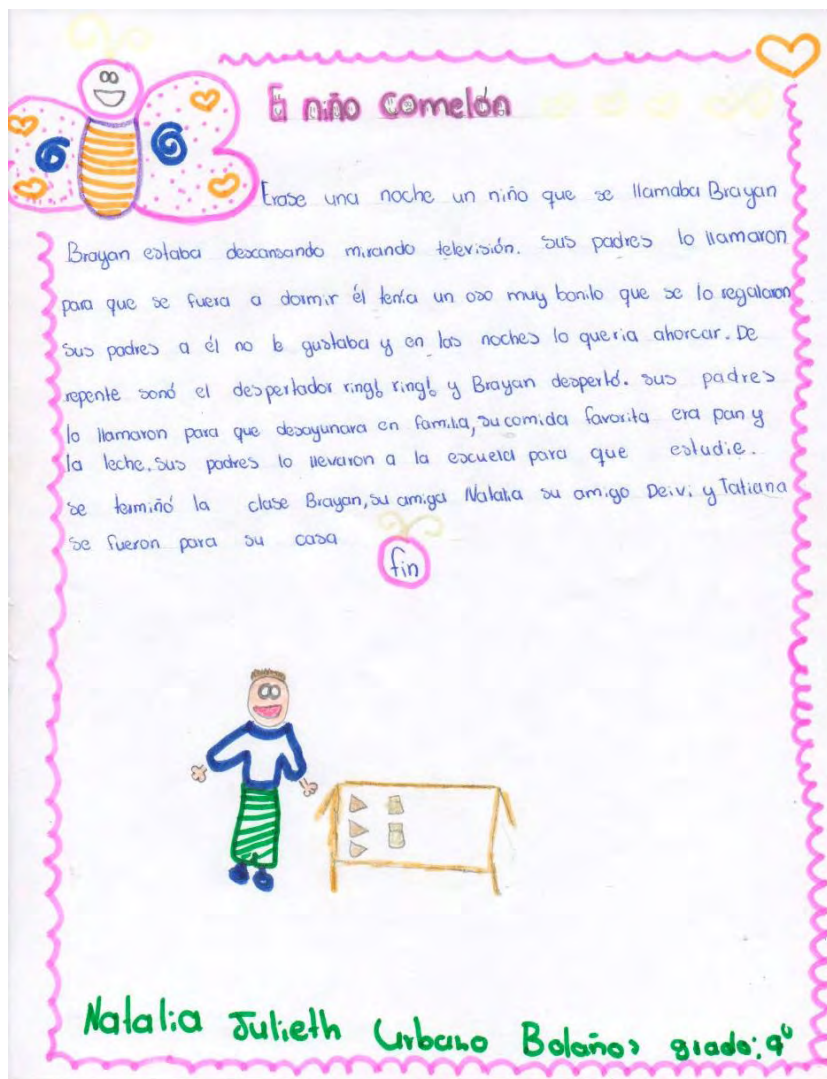 El niño comelón
Erase una noche un niño que se llamaba Brayan
Brayan estaba descansando mirando televisión. sus padres lo llamaron
para que se fuera a dormir él tenía un oso muy bonito que se lo regalaron
sus padres a él no le gustaba y en las noches lo queria ahorcar. De
repente sonó el despertador ring! ring! y Brayan despertó. sus padres
lo llamaron para que desayunara en familia, su comida favorita era pan y
la leche. sus padres lo llevaron a la escuela para que estudie.
se termiñó la clase Brayan, su amiga Natalia su amigo Deivi y Tatiana
se fueron para su casa
fin
Natalia Julieth Urbano Bolaños grado: 9°